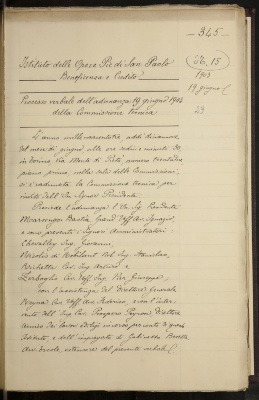 - 345 -
Istituto delle Opere Pie di San Paolo
Beneficenza e Credito
N. 15
1903
19 giugno
Processo verbale dell'adunanza 19 giugno 1903
della Commissione Tecnica
23
L'anno mille novecentotre, addì diciannove
del mese di giugno alle ore
in Torino, Via Monte di Pietà, numero trentadue
piano primo, nella sala della Commissione,
si è radunata la Commissione tecnica per
invito dell' Ill. Signor Presidente.
Presiede l'adunanza l'Ill. Sig. Presidente
Marsengo Bastia Grand' Uff. Avv. Ignazio,
e sono presenti i Signori Amministratori:
Chevalley Ing. Giovanni,
di Robilant Nob. Ing. Stanislao,
Cav. Ing.
Zerboglio Cav. Uff. Ing. Pier Giuseppe,
con l'assistenza del Direttore Generale
Cav. Uff. Avv. Federico, e con l'inter-
vento dell' Ing. Cav. Prospero Peyron Direttore
dei lavori edilizi in corso presenti
Istituto, e dell'impiegato di Gabinetto
Avv. Ercole, estensore del presente verbale.